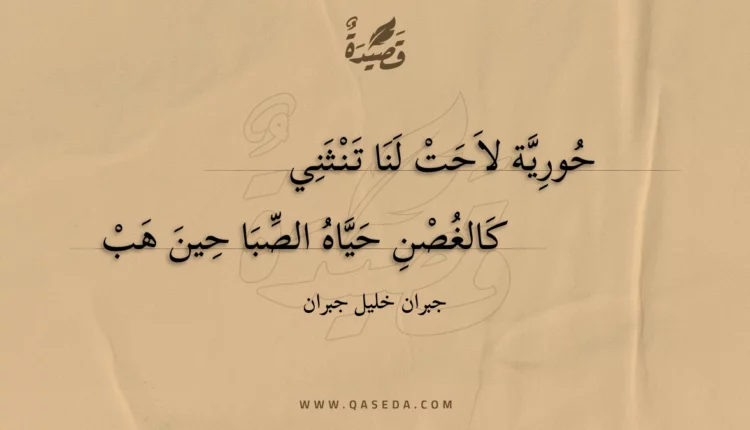 قَصِيْدَةٌ
حُورِيَّة لاَحَتْ لَنَا تَنْثَنِي
كَالغُصْنِ حَيَّاهُ الصِّبَا حِينَ هَبْ
جبران خليل جبران
WWW.QASEDA.COM